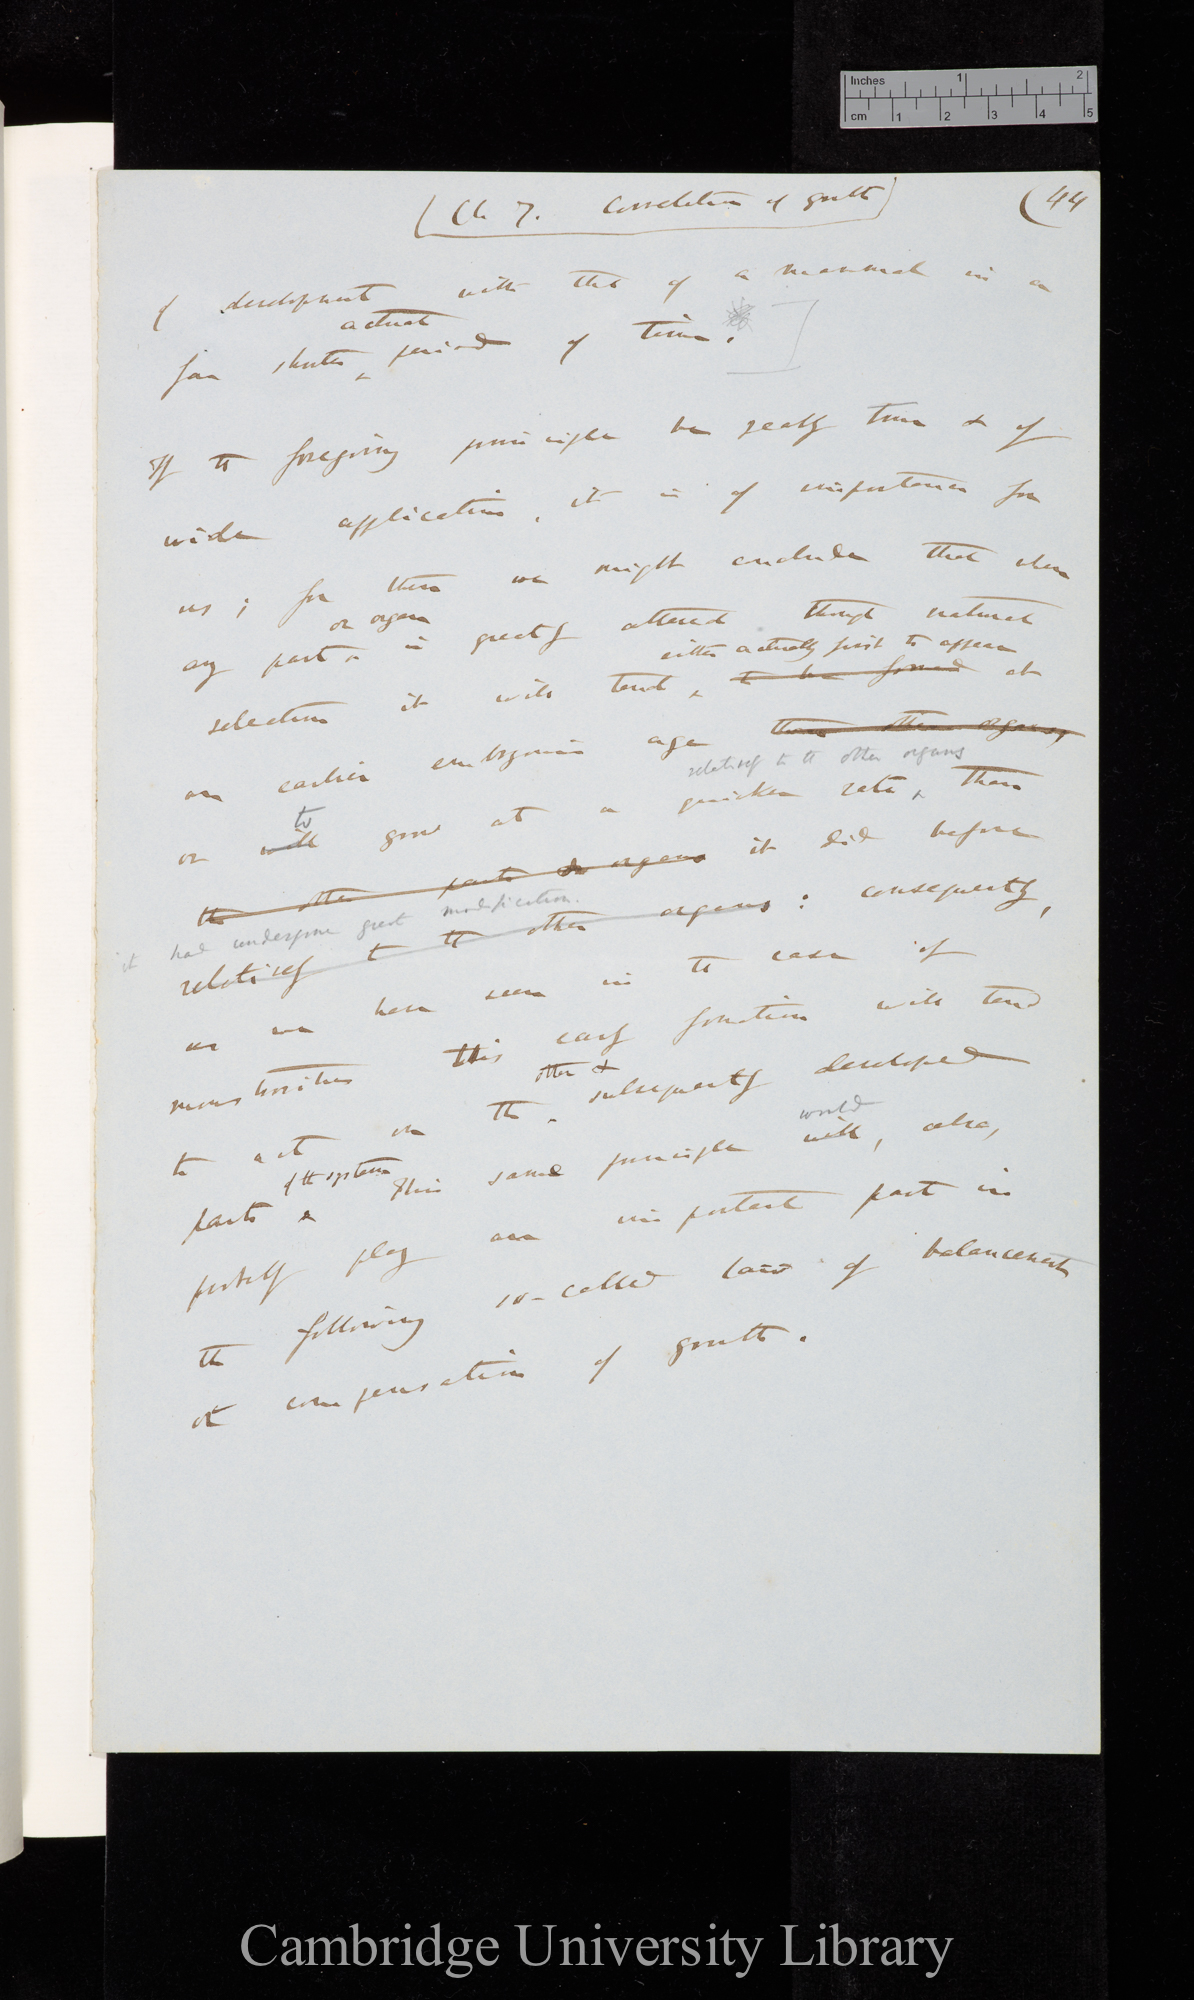 Inches 1 2
cm 1 2 3 4 5
(Ch 7. Correlation of growth) (44
of development with that of a mammal in a
actual
far shorter ^ period of time.
If the foregoing principle be really true & of
wide application, it is of importance for
us; for then we might conclude that when
or organ
any part ^ is greatly altered through natural
either actually first to appear
selection it will tend ^ to be formed at
an earlier embryonic age than other organs,
relatively to the other organs
to
or will grow at a quicker rate ^ than
the other parts or organs it did before
it had undergone great modification.
relatively to the other organs: consequently,
as we have seen in the case of
monstrosities this early formation will tend
other &
to act on the ^ subsequently developed
of the system would
parts ^ This same principle will, also,
probably play an important part in
the following so-called law of balancement
or compensation of growth.
Cambridge University Library